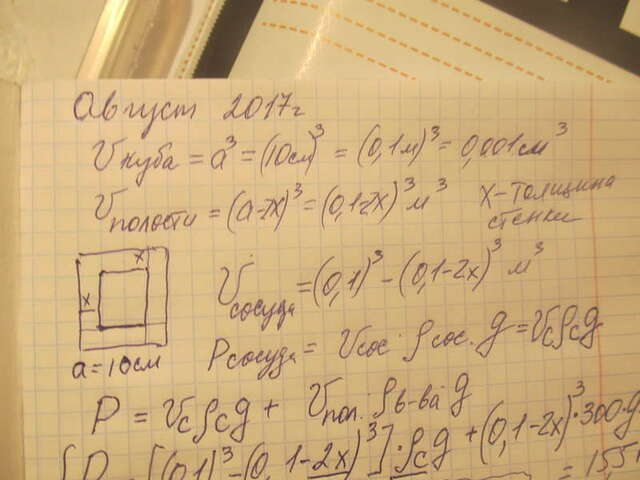 Август 2017г
Vкуба = a³ = (10см)³ = (0,1м)³ = 0,001см³
Vполости = (a-2x)³ = (0,1-2x)³ м³ x-толщина стенки
x
x
a = 10см
Vсосуда = (0,1)³ - (0,1-2x)³ м³
Pсосуда = Vсос · ρсос. g = Vсρсg
P = Vсρсg + Vпол. ρв-ва g
P = [(0,1)³ - (0,1-2x)³] · ρсg + (0,1-2x)³ · 300 · g